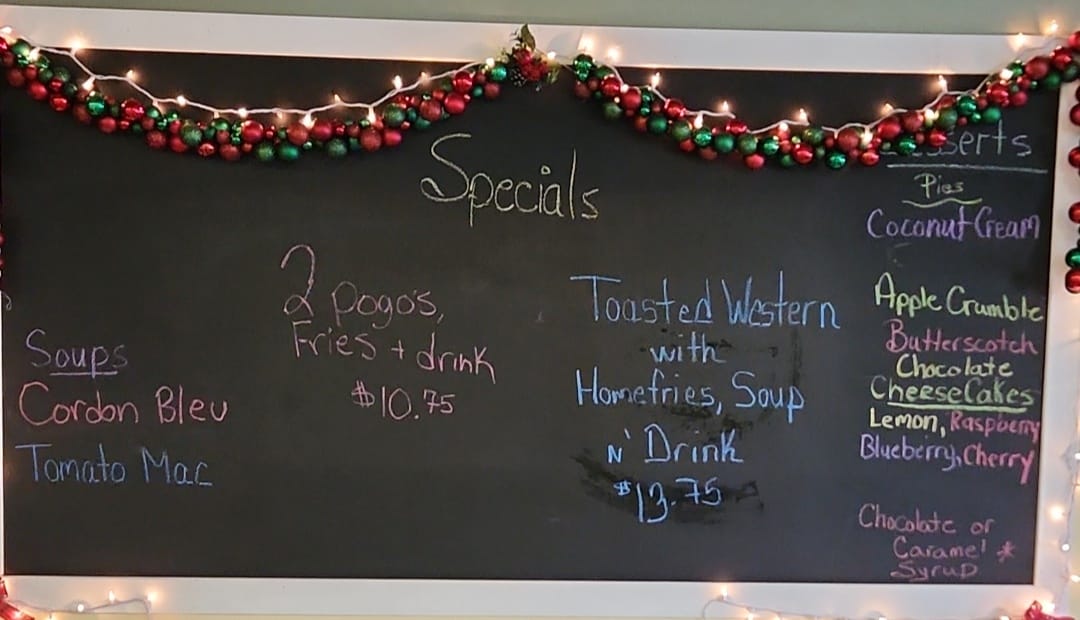 Specials
Soups
Cordon Bleu
Tomato Mac
2 Pogo's,
Fries + drink
$10.75
Toasted Western
with
Homefries, Soup
N' Drink
$13.75
Pies
Coconut Cream
Apple Crumble
Butterscotch
Chocolate
CheeseCakes
Lemon, Raspberry
Blueberry, Cherry
Chocolate or
Caramel *
Syrup